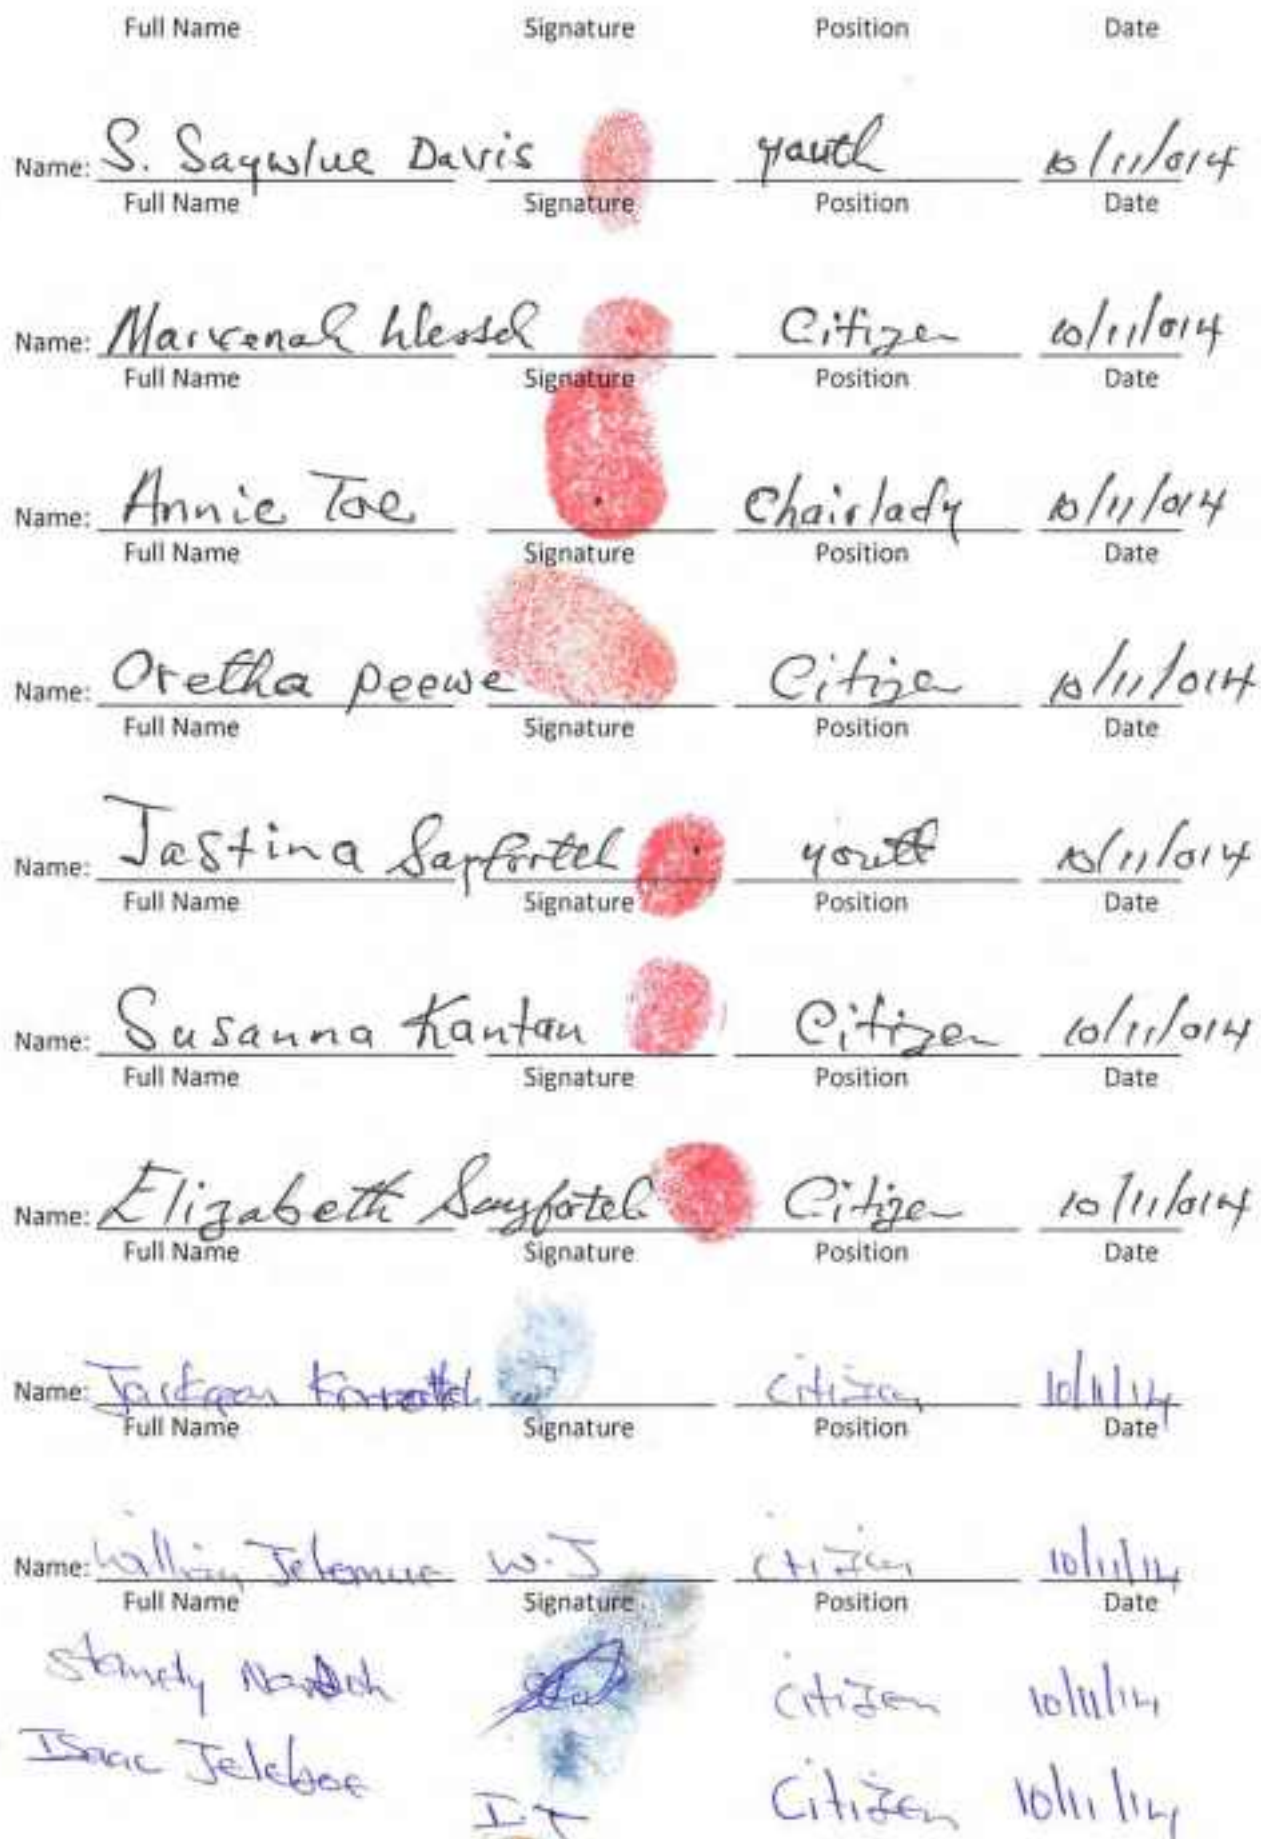 Full Name Signature Position Date
Name: S. Saywlue Davis youth 10/11/014
Full Name Signature Position Date
Name: Citizen 10/11/014
Full Name Signature Position Date
Name: Annie Toe Chairlady 10/11/014
Full Name Signature Position Date
Name: Oretha peewe Citizen 10/11/014
Full Name Signature Position Date
Name: Jastina Sayforteh youth 10/11/014
Full Name Signature Position Date
Name: Susanna Kantan Citizen 10/11/014
Full Name Signature Position Date
Name: Elizabeth Sayforteh Citizen 10/11/014
Full Name Signature Position Date
Name: citizen 10/11/14
Full Name Signature Position Date
Name: W.J citizen 10/11/14
Full Name Signature Position Date
citizen 10/11/14
Isaac Citizen 10/11/14